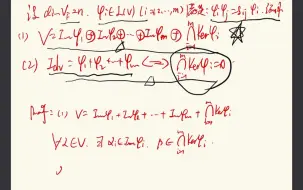 设 dimV=n. φi∈L(V) (i=1,2,…,m) 满足: φiφj=δijφi
(1) V=Imφ1⊕Imφ2⊕…⊕Imφm⊕⋂Kerφi
(2) Idv=φ1+φ2+…+φm ⟺ ⋂Kerφi=0
(1) V=Imφ1+Imφ2+…+Imφm+⋂Kerφi
∀α∈V. ∃ αi∈Imφi. β∈⋂Kerφi.